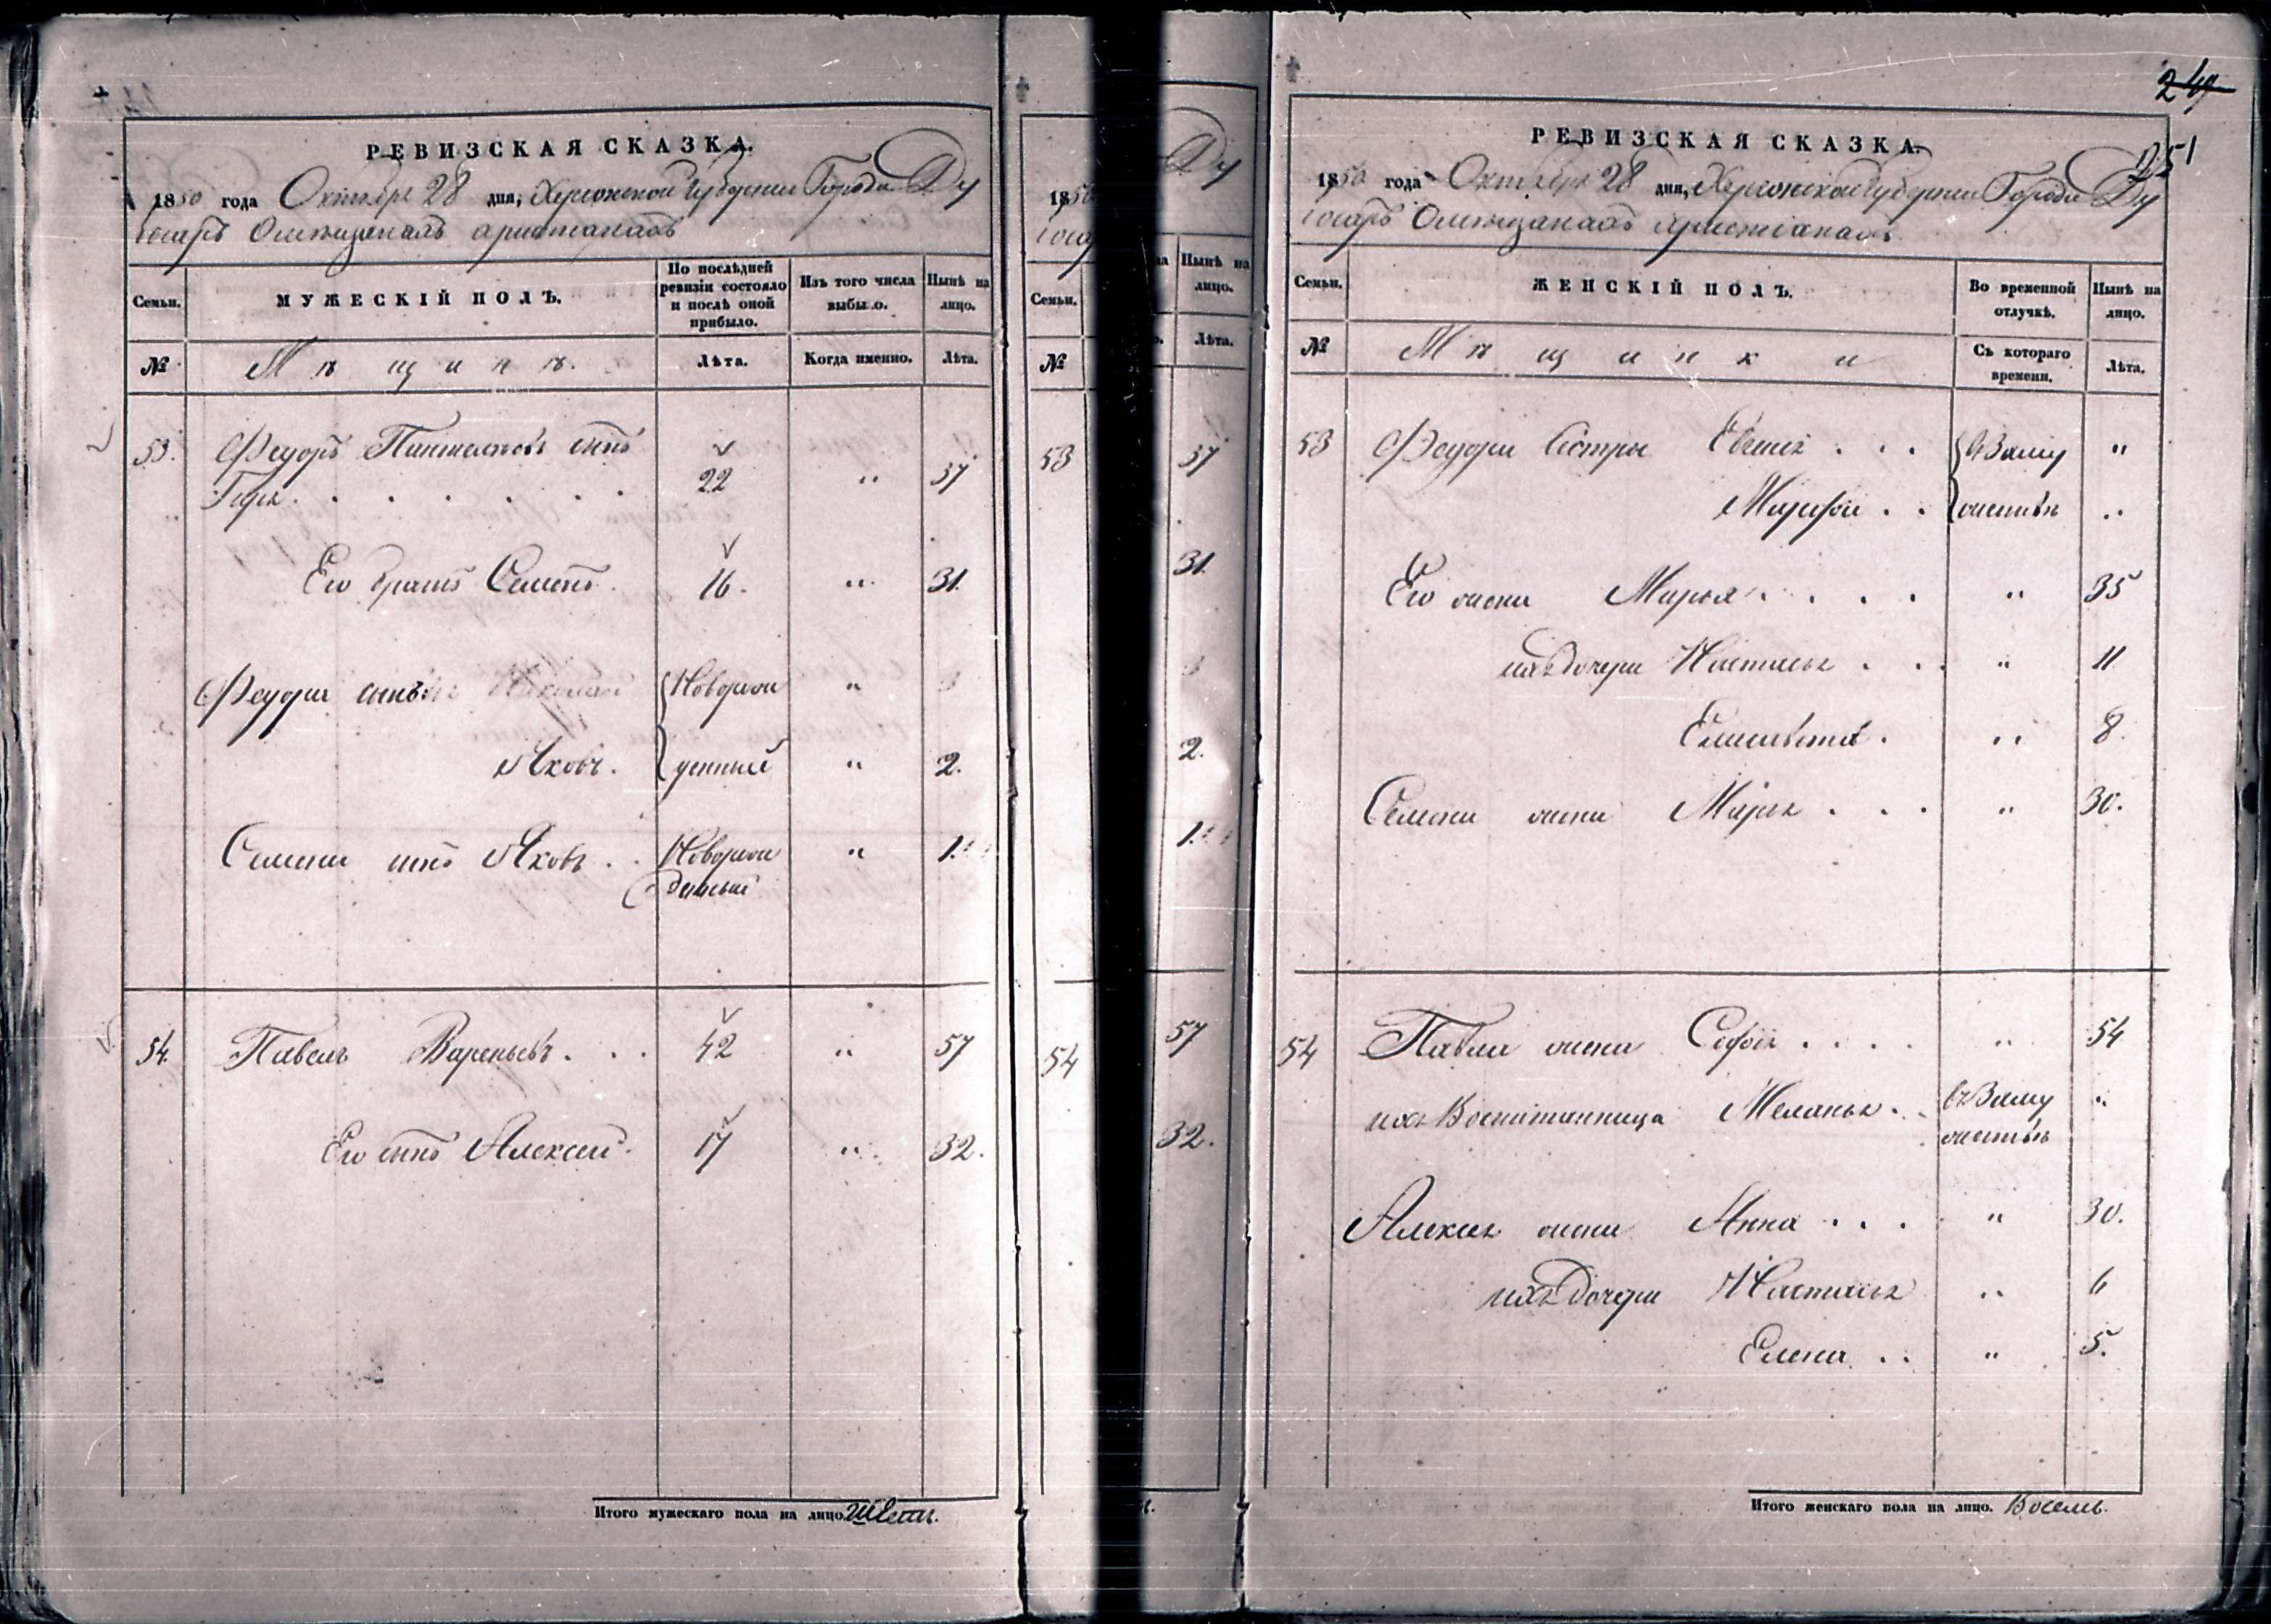 РЕВИЗСКАЯ СКАЗКА.
1850 года Октября 28 дня, Херсонской Губернии Города Ду
Семьи.
МУЖЕСКІЙ ПОЛЪ.
По послѣдней ревизіи состояло и послѣ оной прибыло.
Изъ того числа выбыло.
Нынѣ на лицо.
№
Мѣщине.
Лѣта.
Когда именно.
Лѣта.
53. Федоръ Пантелеевъ сынъ
22 " 37
Его братъ Семенъ. 16. " 31.
Федора сыновья Николай Новорож "
Яковъ. денный " 2.
Семена сынъ Яковъ . . Новорож " 1.
денный
54. Павелъ . . . 42 " 57
Его сынъ Алексей. 17 " 32.
Итого мужескаго пола на лицо. Шесть.
1850
Ду
Семьи.
Нынѣ на лицо.
№
Лѣта.
53 37
31.
2.
1.
54 57
32.
24
251
РЕВИЗСКАЯ СКАЗКА.
1850 года Октября 28 дня, Херсонской Губерніи Города Ду
Семьи.
ЖЕНСКІЙ ПОЛЪ.
Во временной отлучкѣ.
Нынѣ на лицо.
№
Мѣщинки
Съ котораго времени.
Лѣта.
53 Федора Сестры . . . въ Заму "
. . жествѣ "
Его жена Марья . . . . " 35
ихъ Дочери Настасья . . . " 11
Елисавета . " 8.
Семена жена Марья . . . " 30.
54 Павла жена Софія . . . . " 54
ихъ Воспитанница Меланья . . въ Заму "
жествѣ
Алексея жена Анна . . . " 30.
ихъ Дочери Настасья " 6
Елена . . " 5.
Итого женскаго пола на лицо. Восемь.